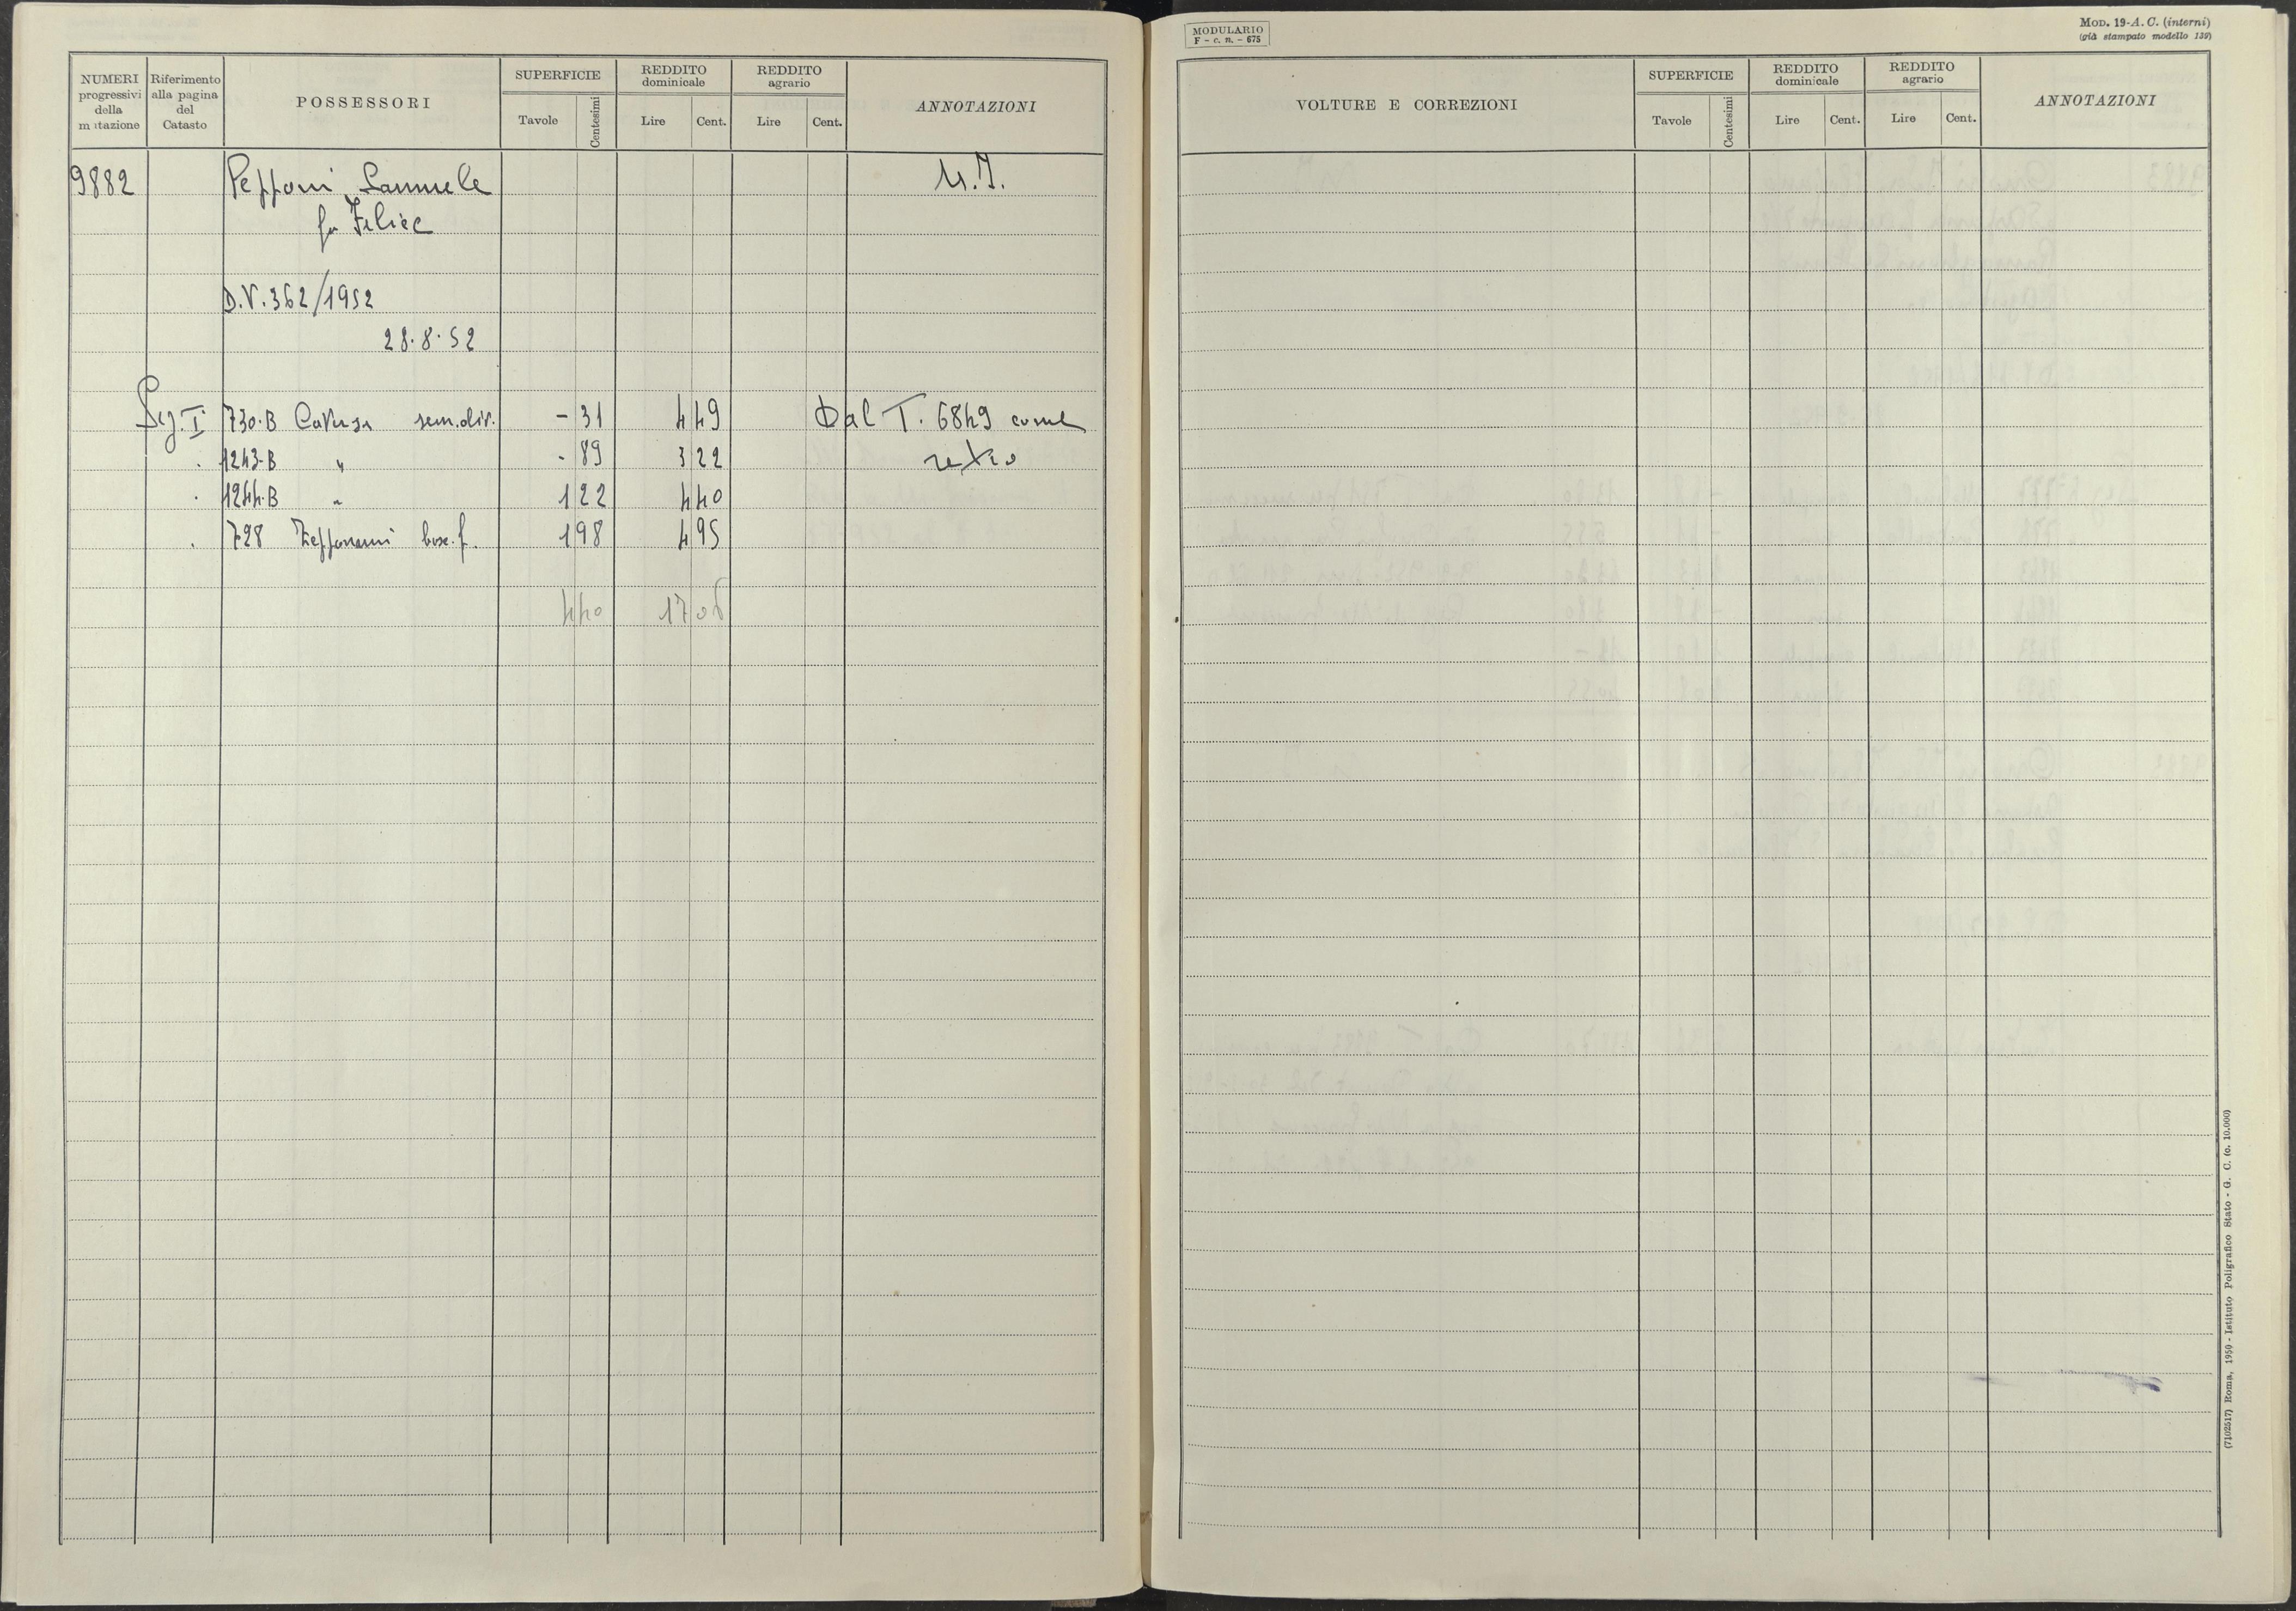 NUMERI progressivi della mutazione | Riferimento alla pagina del Catasto | POSSESSORI | SUPERFICIE Tavole Centesimi | REDDITO dominicale Lire Cent. | REDDITO agrario Lire Cent. | ANNOTAZIONI
9882 Pepponi Samuele U.I.
fu Felice
D.V. 362/1952
28.8.52
Sez. I 730-B Caversa sem.div. - 31 4 49 Dal T. 6849 come
. 1243-B " - 89 3 22 retro
. 1244-B " 1 22 4 40
. 728 Zepponami bosc.f. 1 98 4 95
4 40 17 06
MODULARIO
F - c. n. - 675
MOD. 19-A. C. (interni)
(già stampato modello 139)
VOLTURE E CORREZIONI | SUPERFICIE Tavole Centesimi | REDDITO dominicale Lire Cent. | REDDITO agrario Lire Cent. | ANNOTAZIONI
(7102517) Roma, 1950 - Istituto Poligrafico Stato - G. C. (o. 10.000)